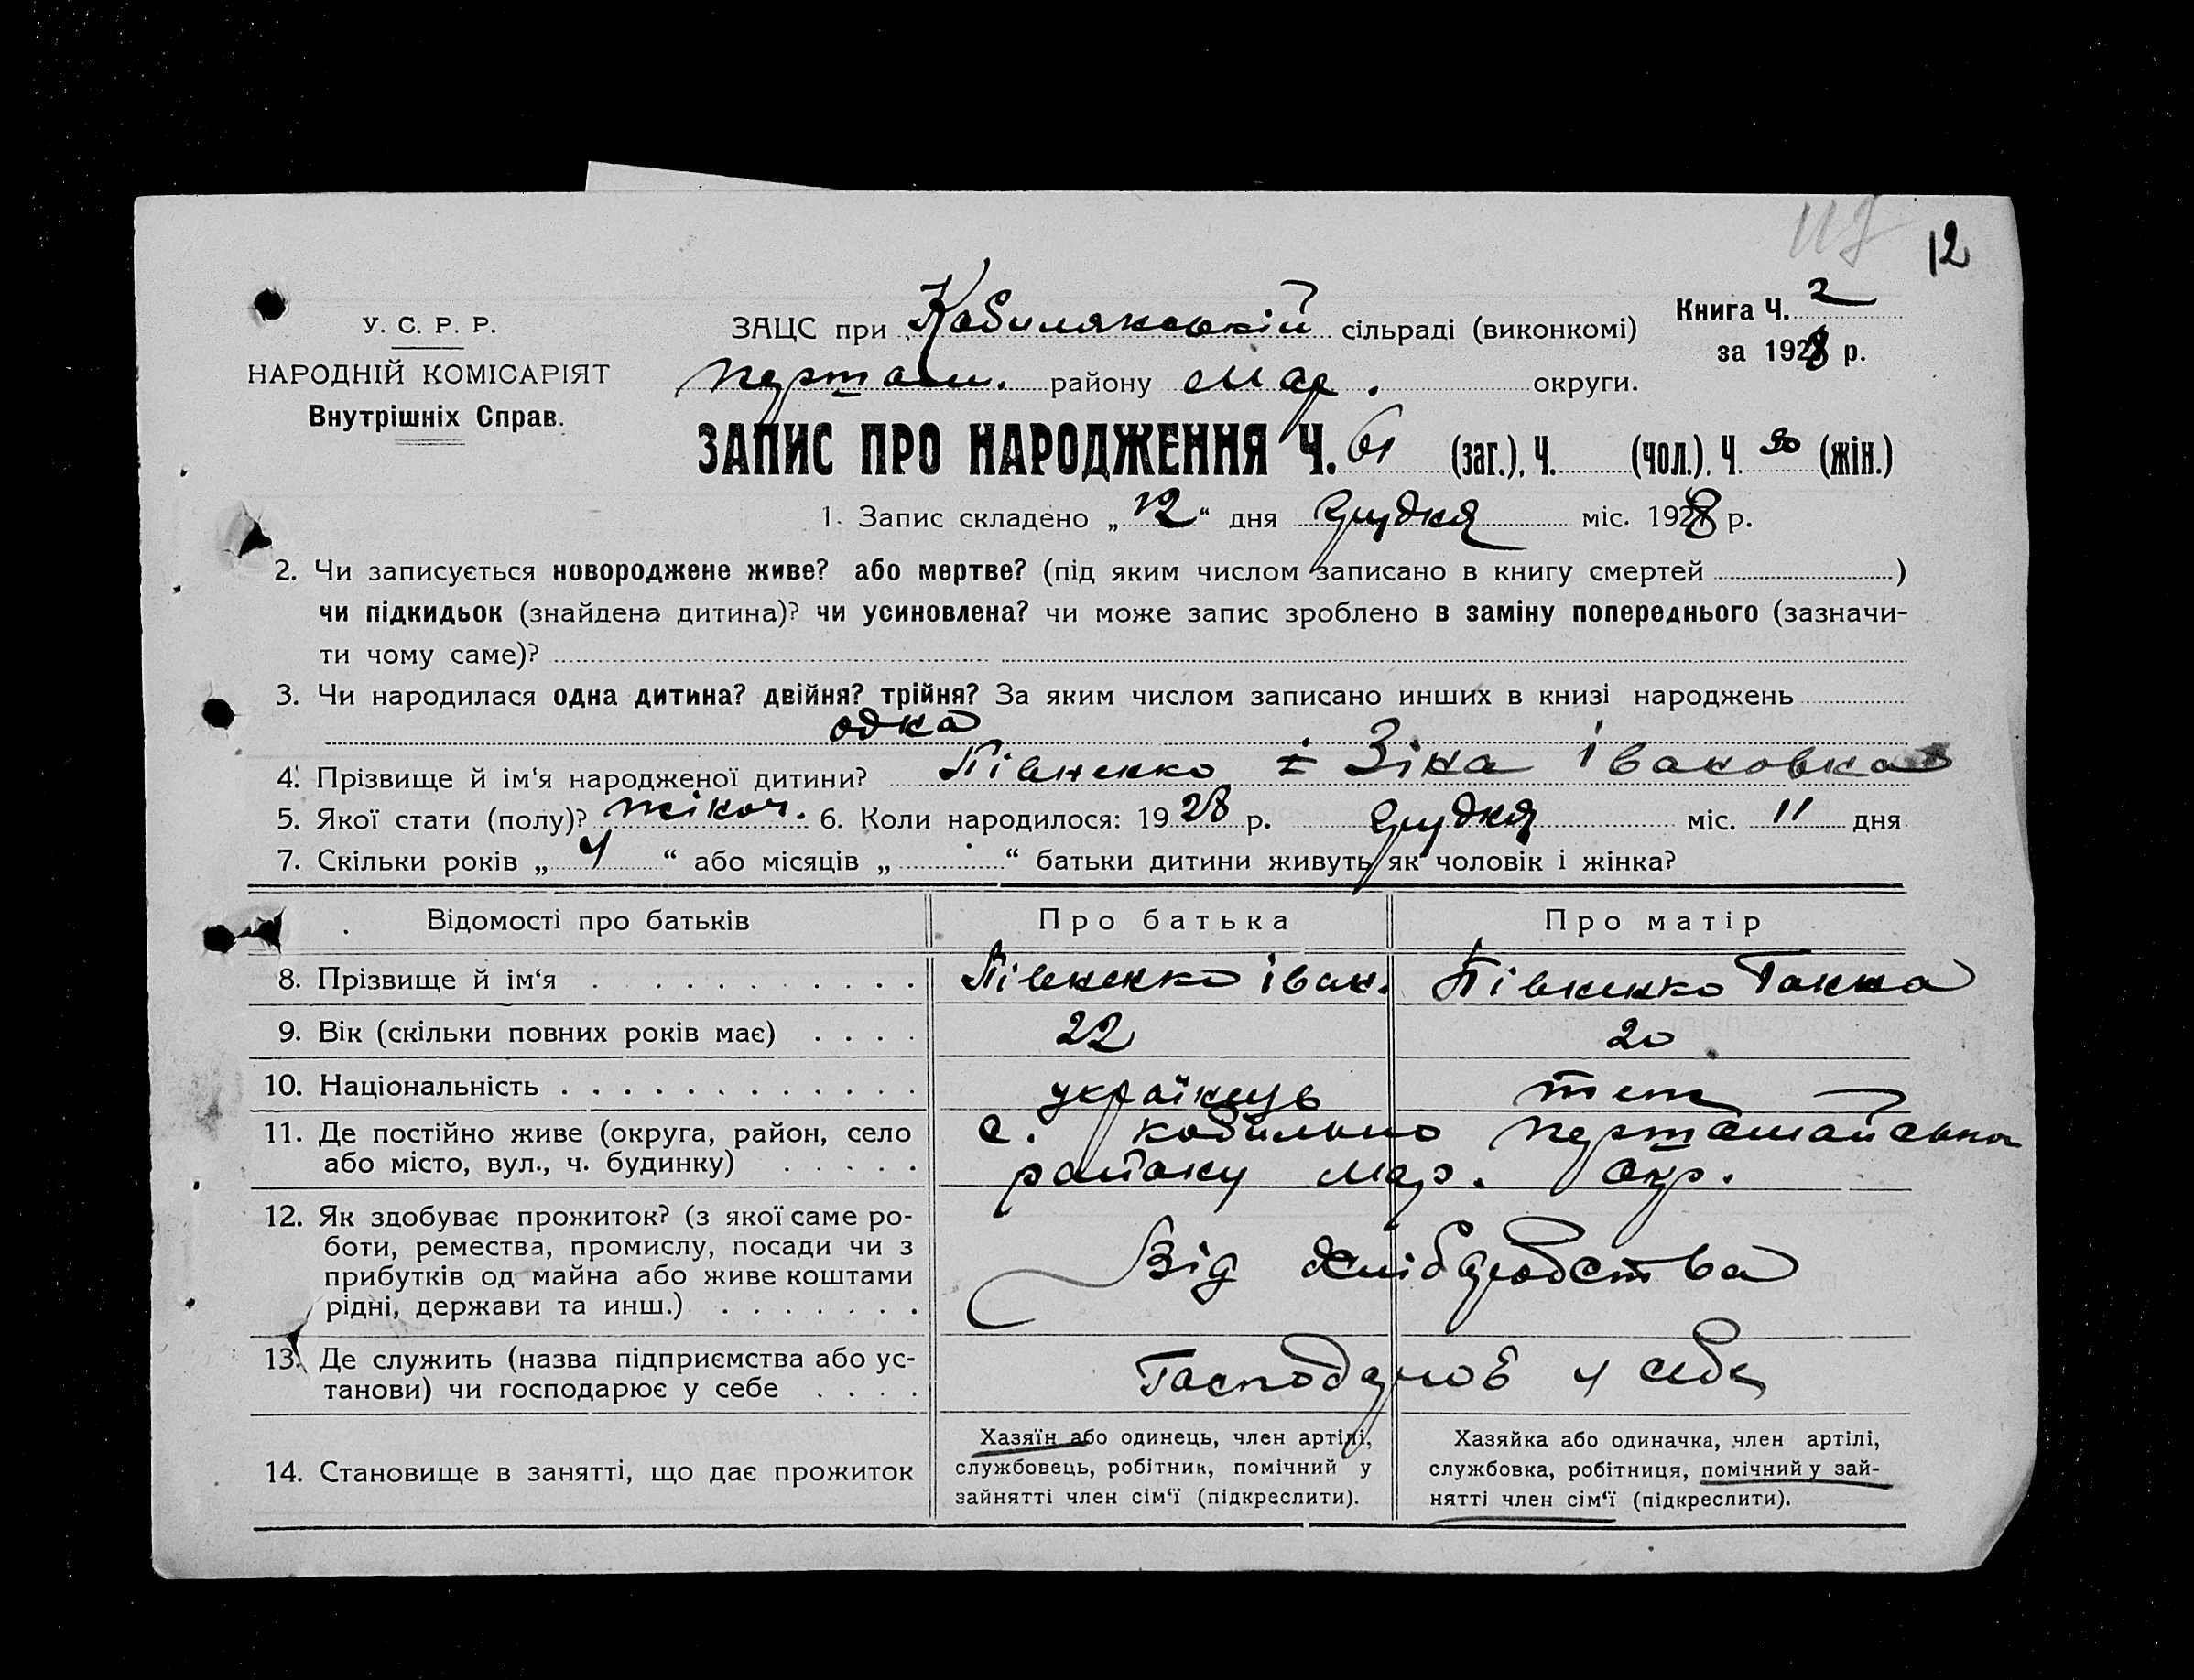 117 12
У. С. Р. Р.
НАРОДНІЙ КОМІСАРІЯТ
Внутрішніх Справ.
ЗАЦС при Кобиляковській сільраді (виконкомі)
Книга Ч. 2
за 1928 р.
першт. району Мар. округи.
ЗАПИС ПРО НАРОДЖЕННЯ Ч. 61 (заг.), Ч. (чол.), Ч. 30 (жін.)
1. Запис складено „12“ дня Грудня міс. 1928 р.
2. Чи записується новороджене живе? або мертве? (під яким числом записано в книгу смертей )
чи підкидьок (знайдена дитина)? чи усиновлена? чи може запис зроблено в заміну попереднього (зазначи-
ти чому саме)?
3. Чи народилася одна дитина? двійня? трійня? За яким числом записано инших в книзі народжень
одна
4. Прізвище й ім'я народженої дитини? Півненко Зіна Івановна
5. Якої стати (полу)? жіноч. 6. Коли народилося: 1928 р. Грудня міс. 11 дня
7. Скільки років „ 4 “ або місяців „ “ батьки дитини живуть як чоловік і жінка?
Відомості про батьків Про батька Про матір
8. Прізвище й ім‘я Півненко Іван. Півненко Ганна
9. Вік (скільки повних років має) 22 20
10. Національність українець теж
11. Де постійно живе (округа, район, село
або місто, вул., ч. будинку)
с. Кобильно
району Мар. Окр.
12. Як здобуває прожиток? (з якої саме ро-
боти, ремества, промислу, посади чи з
прибутків од майна або живе коштами
рідні, держави та инш.)
Від хліборобства
13. Де служить (назва підприємства або ус-
танови) чи господарює у себе
Господарює у себе
14. Становище в занятті, що дає прожиток
Хазяїн або одинець, член артілі,
службовець, робітник, помічний у
зайнятті член сім‘ї (підкреслити).
Хазяйка або одиначка, член артілі,
службовка, робітниця, помічний у зай-
нятті член сім‘ї (підкреслити).